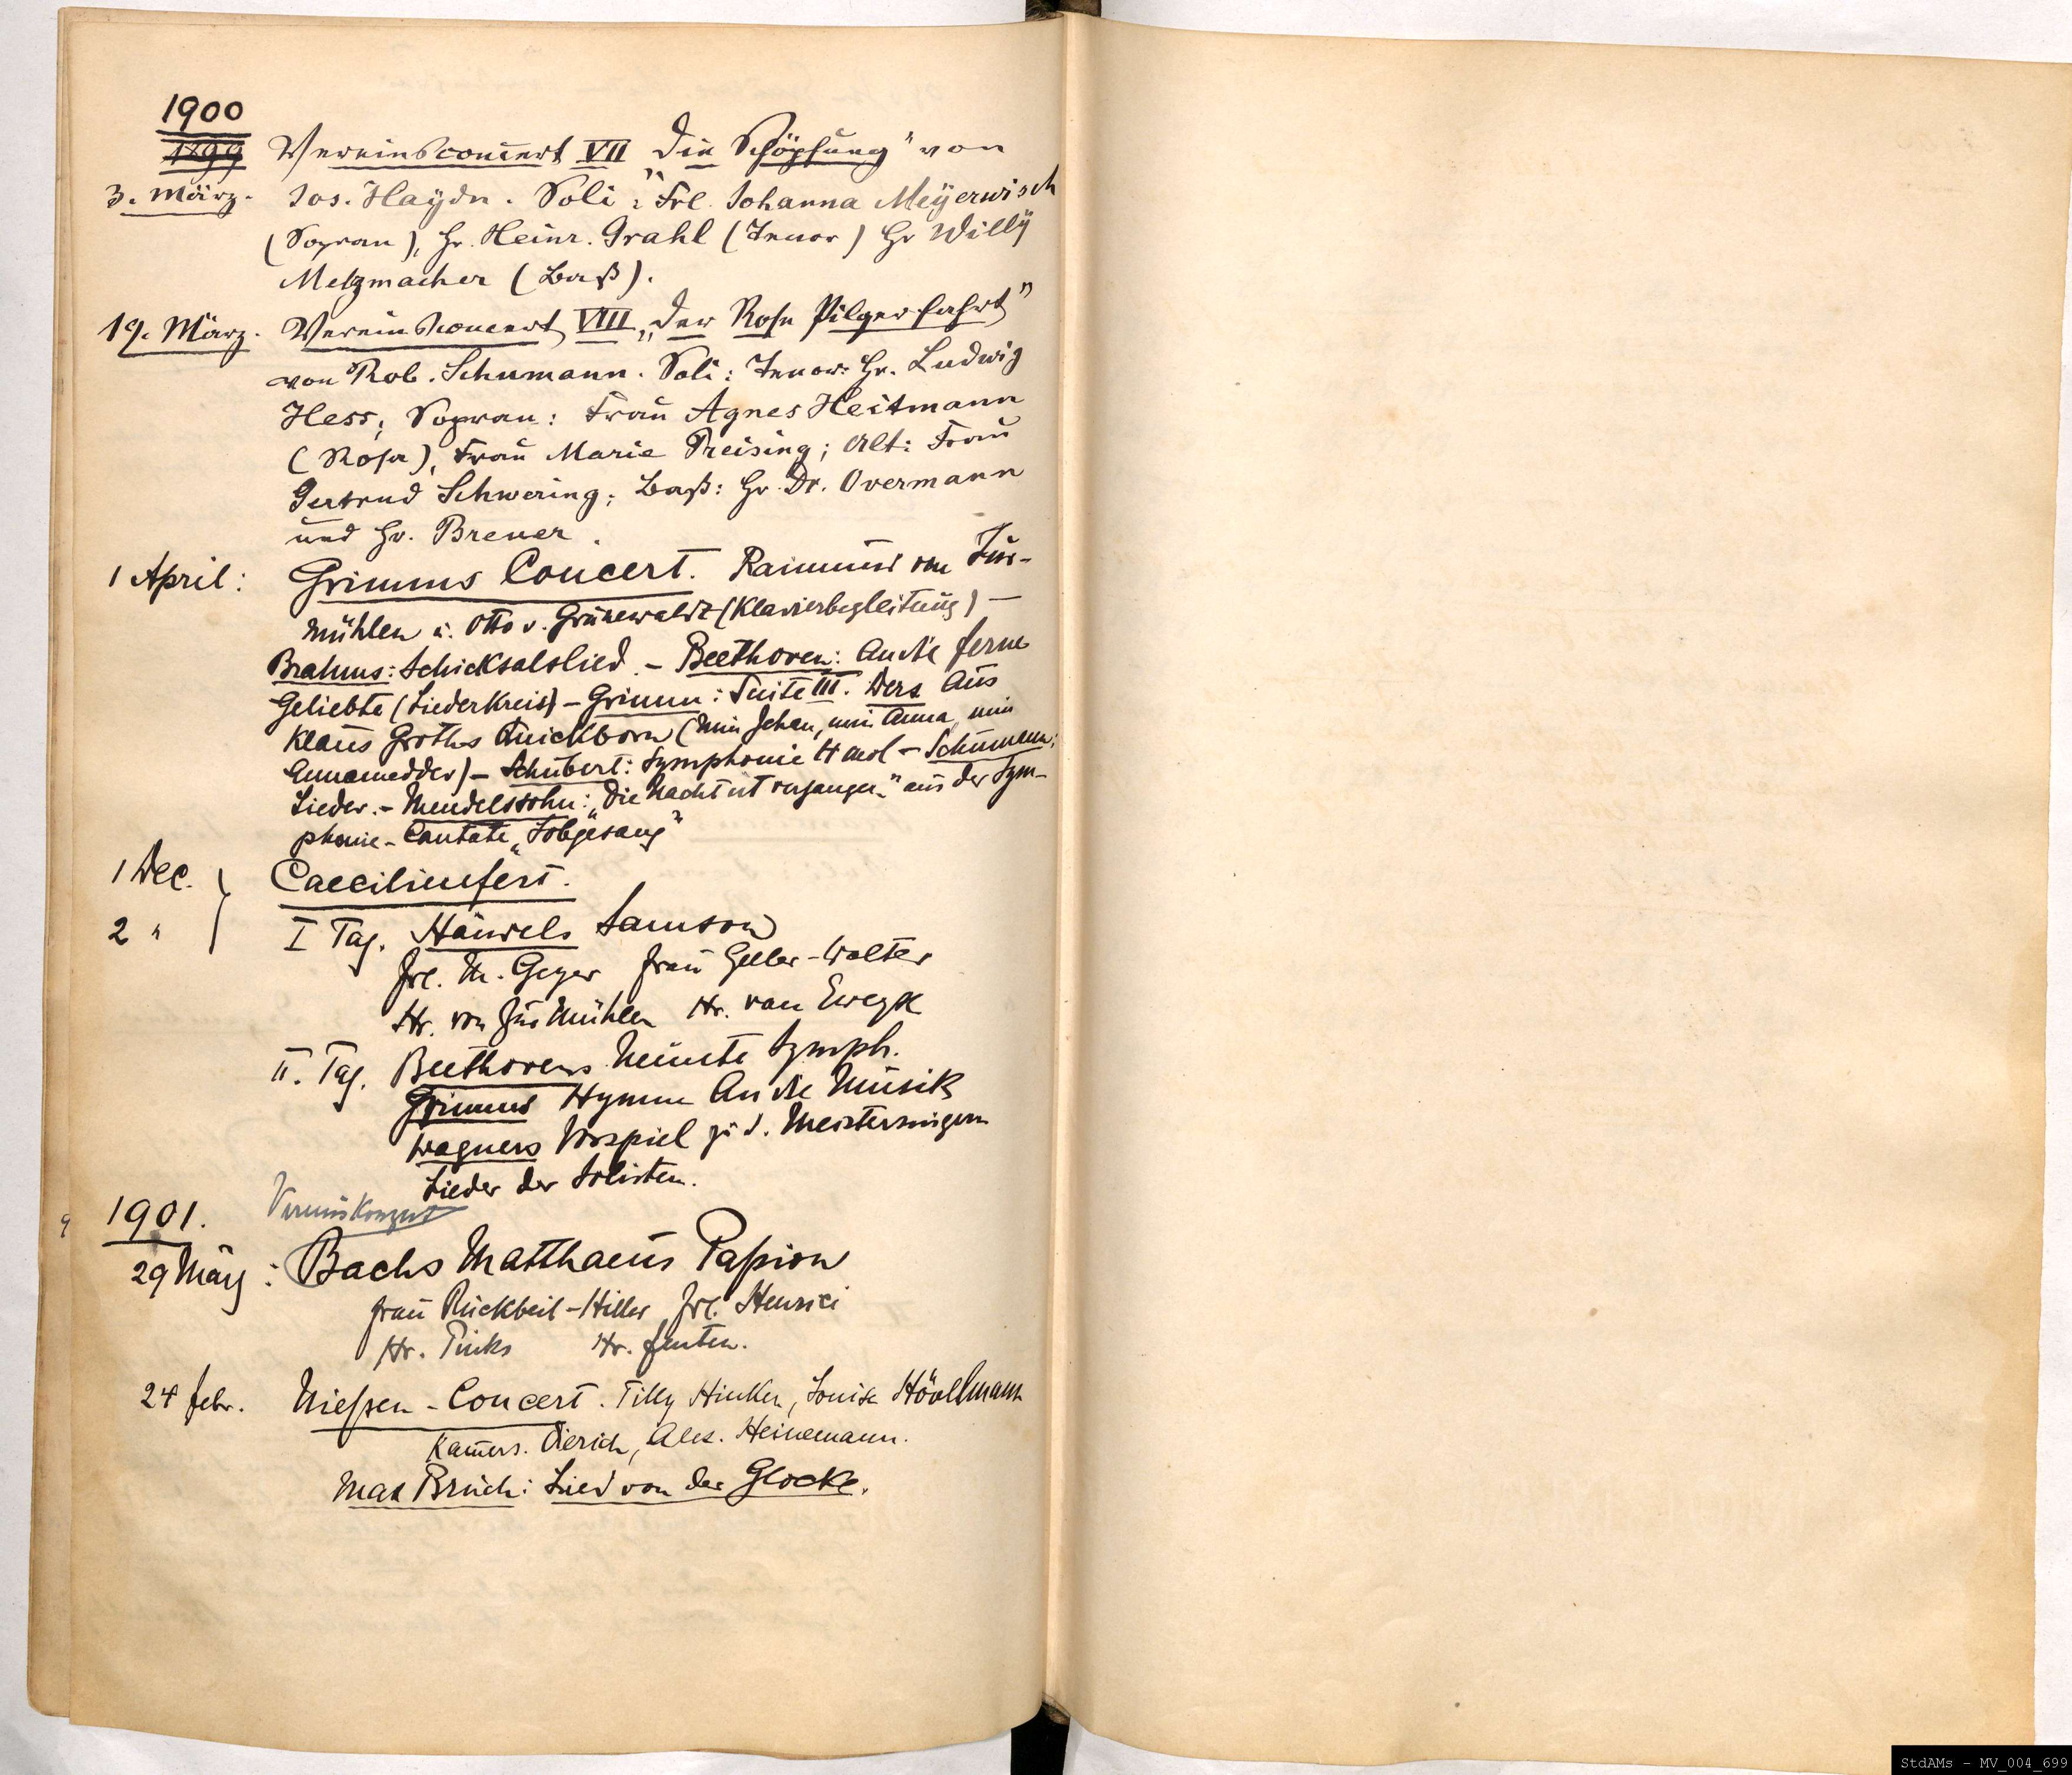 1900
1899 Vereinsconcert VII „Die Schöpfung" von
3. März. Jos. Haydn. Soli: Frl. Johanna Meÿerwisch
(Sopran), Hr. Heinr. Grahl (Tenor) Hr Willÿ
Metzmacher (Baß).
19. März. Vereinsconcert VIII „Der Rose Pilgerfahrt"
von Rob. Schumann. Soli: Tenor: Hr. Ludwig
Hess; Sopran: Frau Agnes Heitmann
(Rosa), Frau Marie Preising; Alt: Frau
Gertrud Schwering; Baß: Hr. Dr. Overmann
und Hr. Brener.
1 April: Grimms Concert. Raimund von Zur-
Mühlen u. Otto v. Grünewaldt (Klavierbegleitung) —
Brahms: Schicksalslied – Beethoven: An die ferne
Geliebte (Liederkreis) – Grimm: Suite III. Ders Aus
Klaus Groths Quickborn (Min Jehan, min Anna, min
Annamedder) – Schubert: Symphonie H mol – Schumann:
Lieder. – Mendelssohn: „Die Nacht ist vergangen" aus der Sym-
phonie-Cantate „Lobgesang"
1 Dec. Caecilienfest.
2 " I Tag. Händels Samson
Frl. M. Geyer Frau Geller-Wolter
Hr. von Zur Mühlen Hr. van Eweyk
II. Tag. Beethovens Neunte Symph.
Grimms Hymne An die Musik
Wagners Vorspiel zu d. Meistersingern
Lieder der Solisten.
1901. Vereinskonzert
29 März: Bachs Matthaeus Passion
Frau Rückbeil-Hiller Frl. Henrici
Hr. Pinks Hr. Fenten.
24 Febr. Niessen-Concert. Tilly Hinken, Louise Hövelmann
Kammers. Dierich, Alex. Heinemann.
Max Bruch: Lied von der Glocke.
StdAMs - MV_004_699